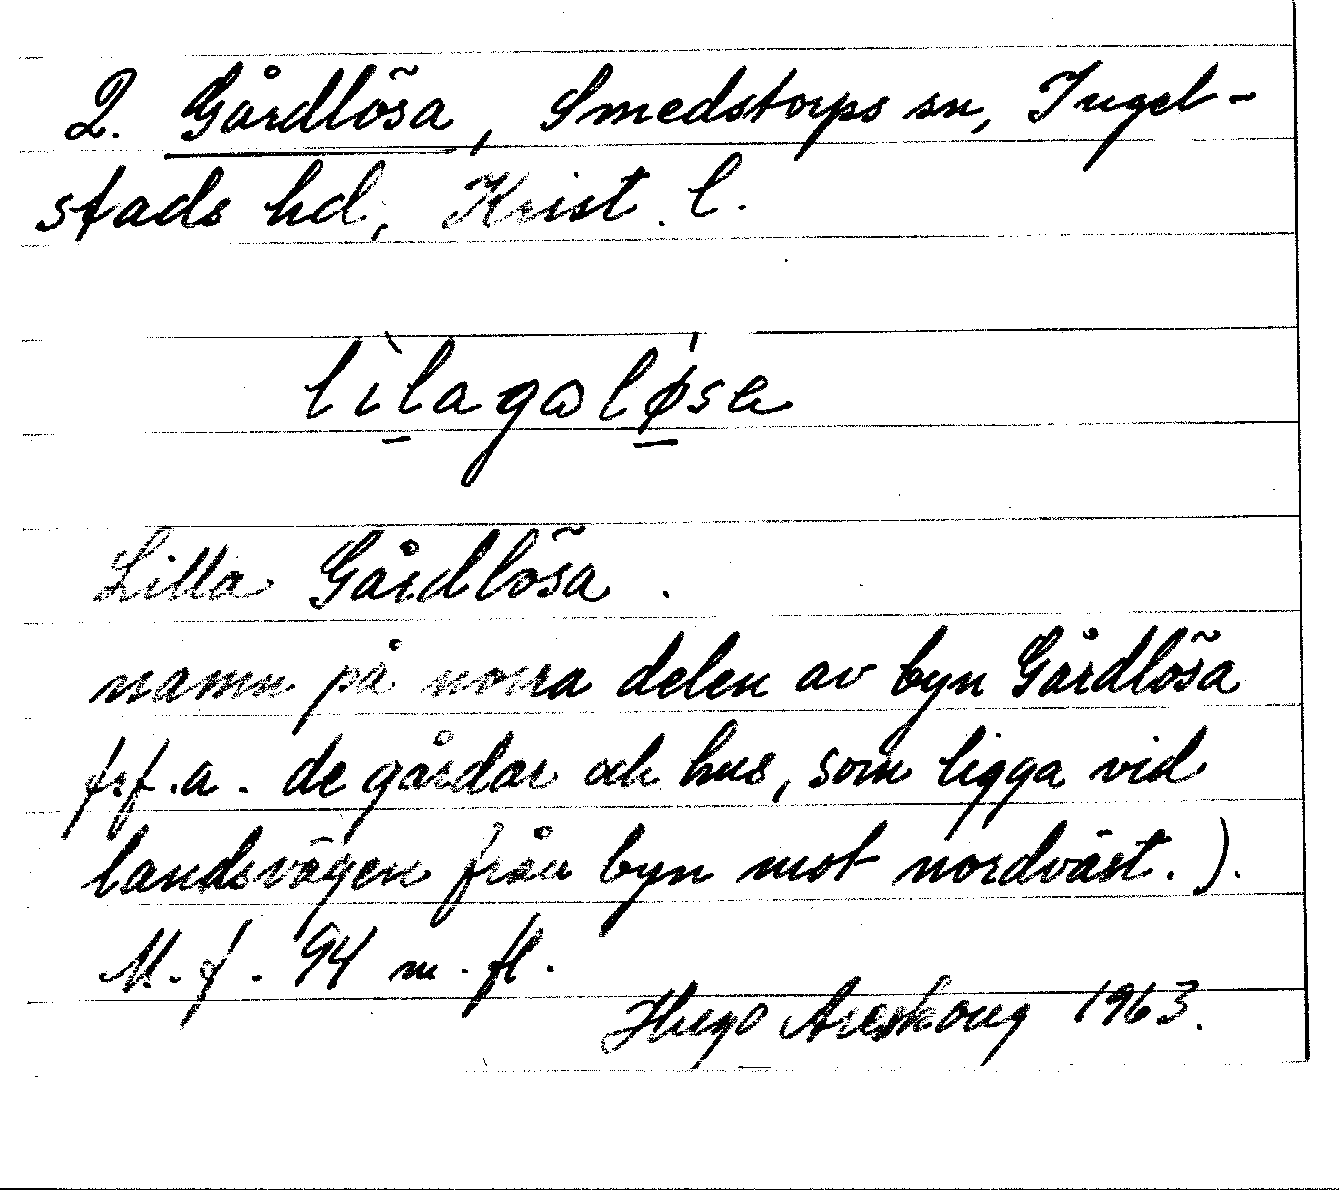 2. Gårdlösa, Smedstorps sn, Ingel-
stads hd, Krist. l.
lìlagaløsa
Lilla Gårdlösa.
namn på norra delen av byn Gårdlösa
frf.a. de gårdar och hus, som ligga vid
landsvägen från byn mot nordväst.).
M.f. 94 m.fl.
Hugo Areskoug 1963.